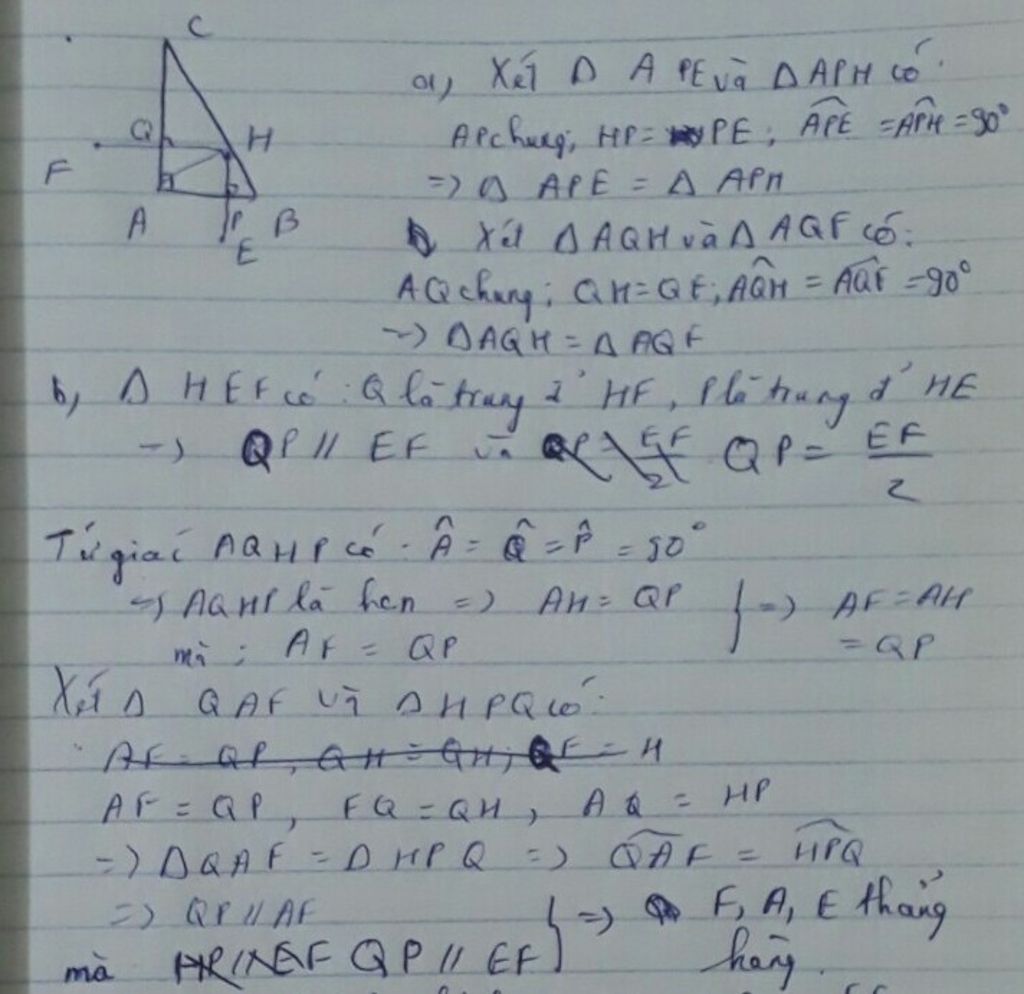 C
Q
H
F
A
P
B
E
a, Xét Δ APE và Δ APH có
AP chung; HP = PE; APE = APH = 90°
=> Δ APE = Δ APH
Xét Δ AQH và Δ AQF có:
AQ chung; QH = QF; AQH = AQF = 90°
=> Δ AQH = Δ AQF
b, Δ HEF có: Q là trung đ' HF, P là trung đ' HE
=> QP // EF và QP = EF/2
Tứ giác AQHP có. Â = Q̂ = P̂ = 90°
=> AQHP là hcn => AH = QP } => AF = AH
mà: AF = QP = QP
Xét Δ QAF và Δ HPQ có:
AF = QP, QH = QH; QF = H
AF = QP, FQ = QH, AQ = HP
=> Δ QAF = Δ HPQ => QAF = HPQ
=> QP // AF } => F, A, E thẳng
mà QP // EF hàng.